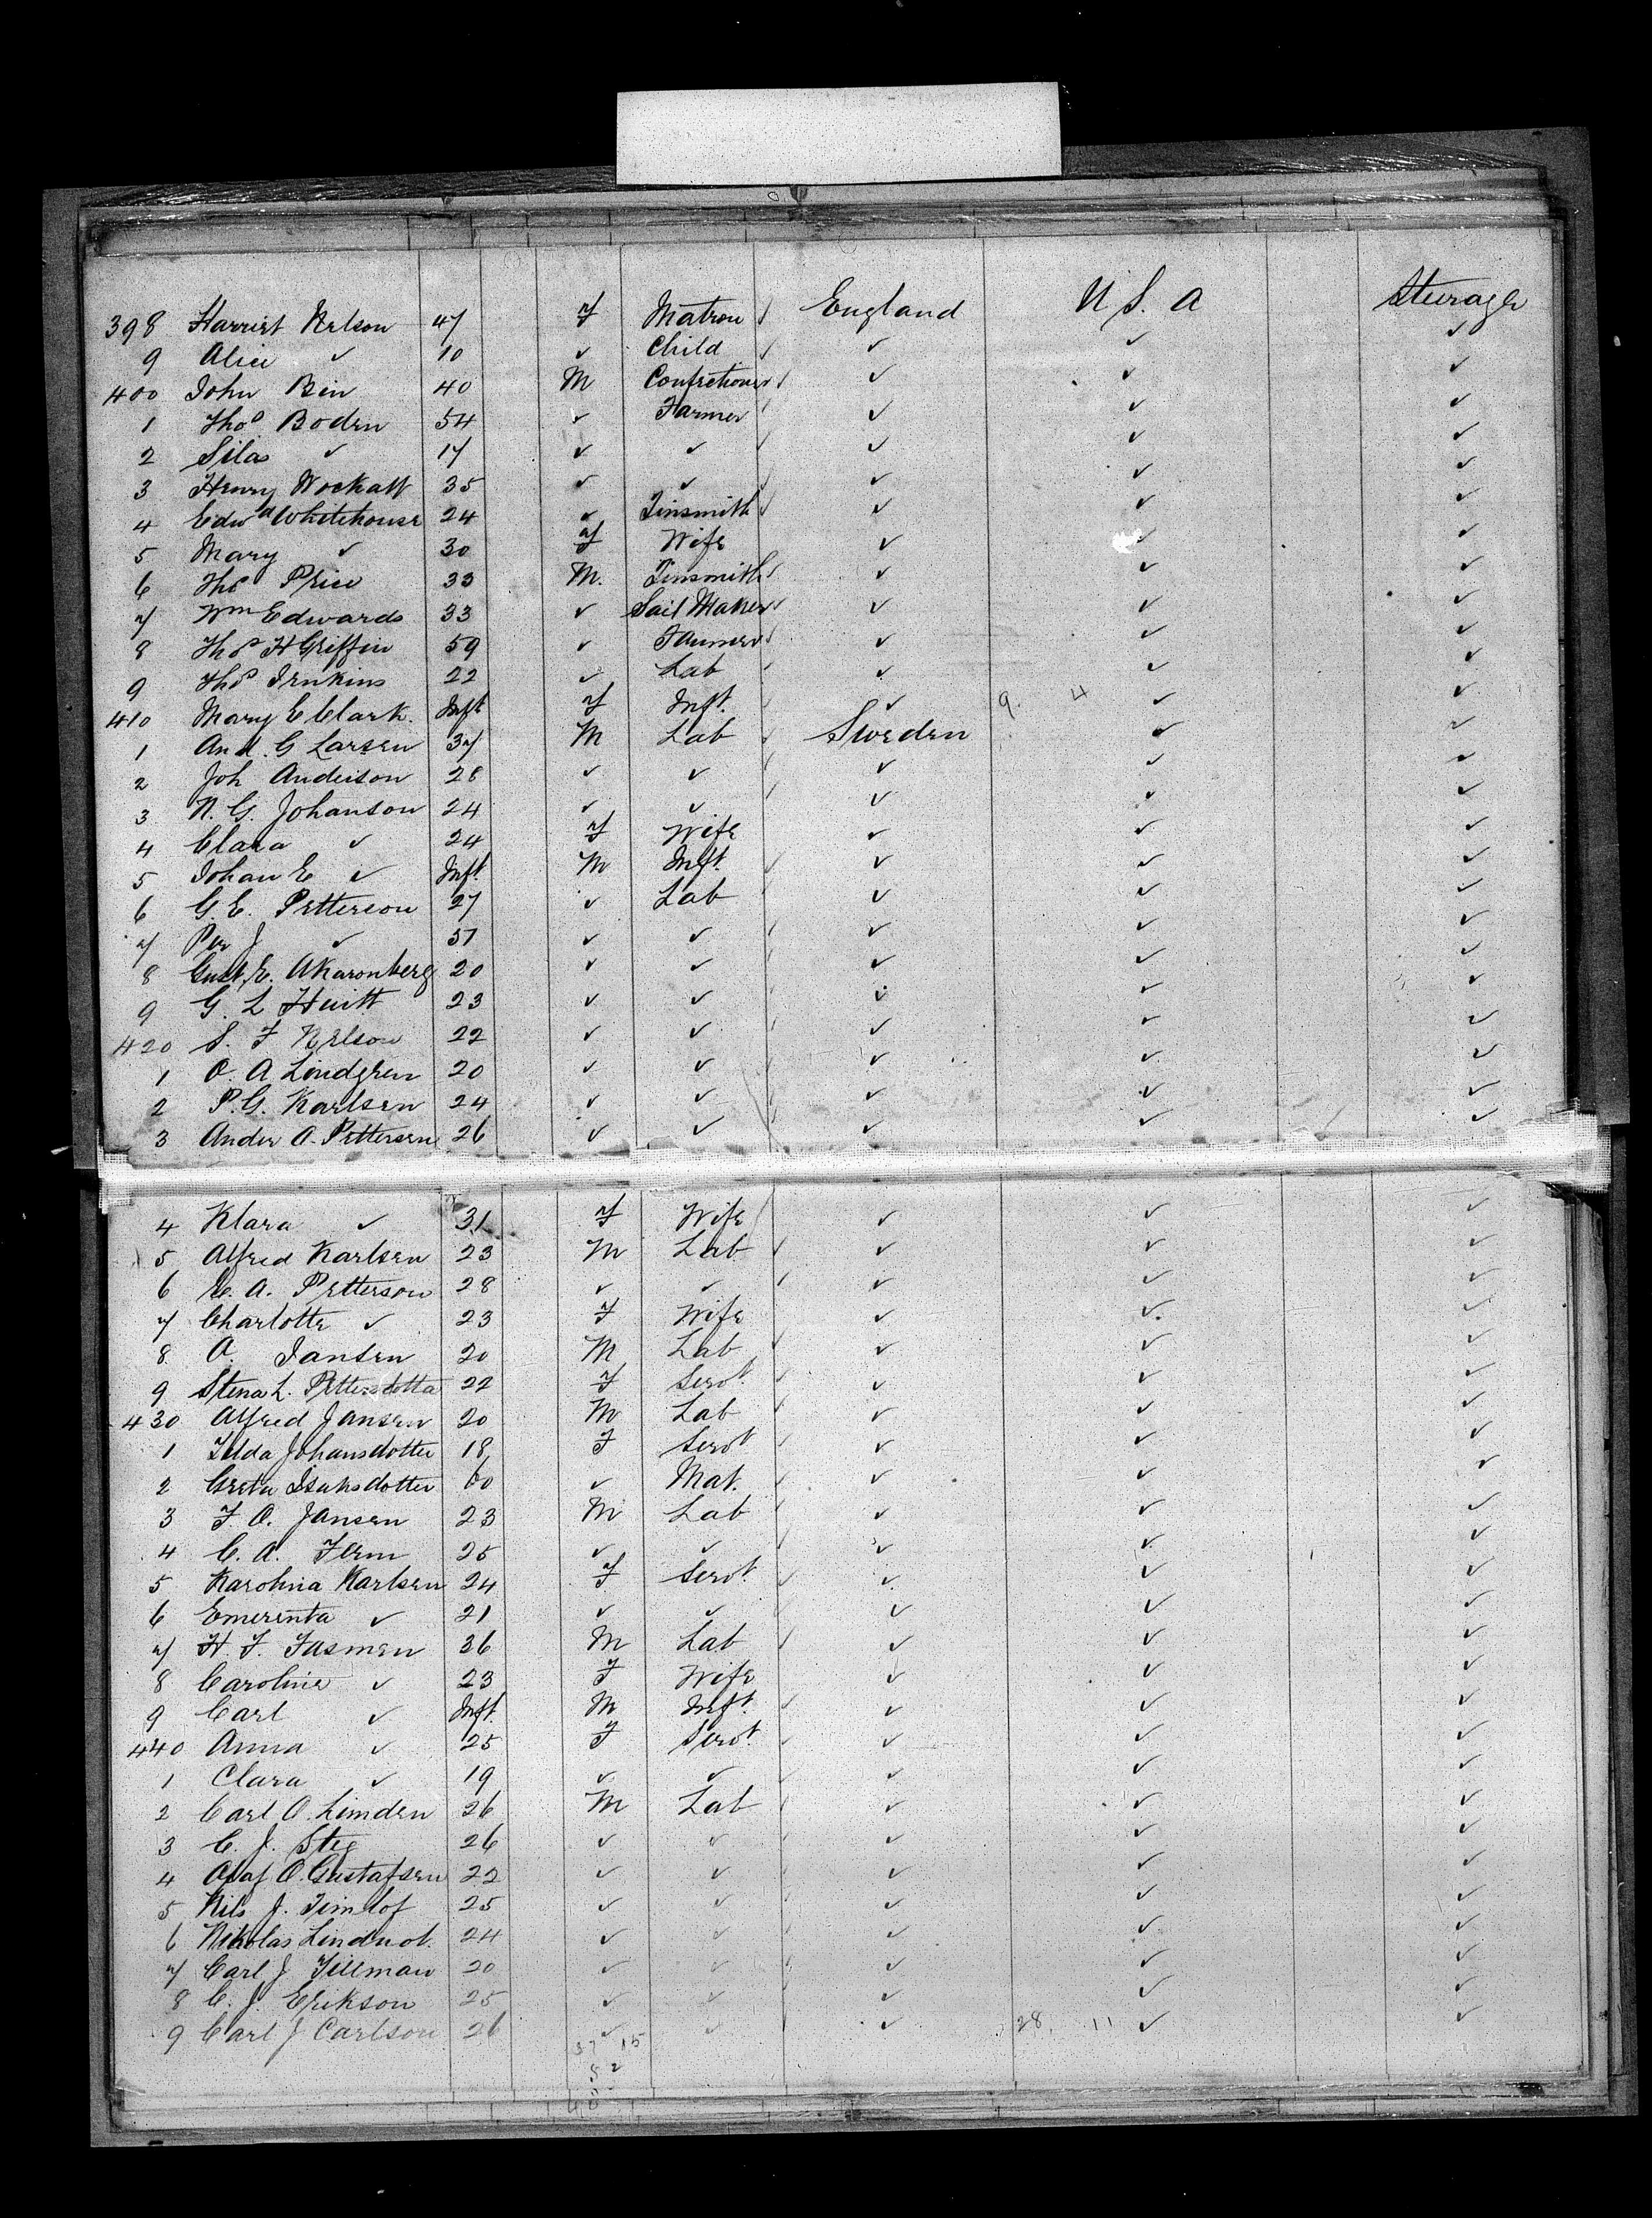 398 Harriet Nelson 47 F Matron ✓ England U S. A Steerage
9 Alice ✓ 10 ✓ Child ✓ ✓ ✓ ✓
400 John Bin 40 M Confectioner ✓ ✓ ✓ ✓
1 Thos Boden 54 ✓ Farmer ✓ ✓ ✓
2 Silas ✓ 17 ✓ ✓ ✓ ✓ ✓ ✓
3 Henry Wockatt 35 ✓ ✓ ✓ ✓ ✓ ✓
4 Edwd Whitehouse 24 ✓ Tinsmith ✓ ✓ ✓ ✓
5 Mary ✓ 30 F Wife ✓ ✓ ✓
6 Thos Price 33 M. Tinsmith ✓ ✓ ✓ ✓
7 Wm Edwards 33 ✓ Sail Maker ✓ ✓ ✓ ✓
8 Thos H Griffin 59 ✓ Farmer ✓ ✓ ✓ ✓
9 Thos Jenkins 22 ✓ Lab ✓ ✓ ✓
410 Mary E Clark. Inft F Inft. ✓ 9. 4 ✓ ✓
1 And. G Larsen 37 M Lab ✓ Sweden ✓ ✓
2 Joh Anderson 28 ✓ ✓ ✓ ✓ ✓
3 N. G. Johanson 24 ✓ ✓ ✓ ✓ ✓
4 Clara ✓ 24 F Wife ✓ ✓ ✓
5 Johan E ✓ Inft. M Inft. ✓ ✓ ✓ ✓
6 G. E. Petterson 27 ✓ Lab ✓ ✓ ✓
7 Per J ✓ 51 ✓ ✓ ✓ ✓ ✓
8 Gust. E. Akaronberg 20 ✓ ✓ ✓ ✓ ✓
9 G. L Huitt 23 ✓ ✓ ✓ ✓ ✓
420 S. F Nelson 22 ✓ ✓ ✓ ✓ ✓
1 O. A Lindgren 20 ✓ ✓ ✓ ✓ ✓
2 P. G. Karlsen 24 ✓ ✓ ✓ ✓ ✓
3 Ander A. Pettersen 26 ✓ ✓ ✓ ✓ ✓
4 Klara ✓ 31 F Wife ✓ ✓ ✓
5 Alfred Karlsen 23 M Lab ✓ ✓ ✓ ✓
6 C. A. Petterson 28 ✓ ✓ ✓ ✓ ✓
7 Charlotte ✓ 23 F Wife ✓ ✓ ✓
8. A. Jansen 20 M Lab ✓ ✓ ✓ ✓
9 Stena L. Pettersdotta 22 F Servt. ✓ ✓ ✓ ✓
430 Alfred Jansen 20 M Lab ✓ ✓ ✓
1 Tilda Johansdotter 18 F Servt ✓ ✓ ✓
2 Greta Isaksdotter 60 ✓ Mat. ✓ ✓ ✓
3 F. O. Jansen 23 M Lab ✓ ✓ ✓
4 C. A. Ferm 25 ✓ ✓ ✓ ✓ ✓
5 Karolina Karlsen 24 F Servt. ✓ ✓ ✓ ✓
6 Emerenta ✓ 21 ✓ ✓ ✓ ✓ ✓
7 H. F. Fasmen 36 M Lab ✓ ✓ ✓ ✓
8 Caroline ✓ 23 F Wife ✓ ✓ ✓
9 Carl ✓ Inft. M Inft. ✓ ✓ ✓ ✓
440 Anna ✓ 25 F Servt. ✓ ✓ ✓ ✓
1 Clara ✓ 19 ✓ ✓ ✓ ✓ ✓
2 Carl O. Limden 26 M Lab ✓ ✓ ✓
3 C. J. Steg 26 ✓ ✓ ✓ ✓ ✓
4 Olaf O. Gustafsen 22 ✓ ✓ ✓ ✓ ✓
5 Nils J. Timlof 25 ✓ ✓ ✓ ✓ ✓
6 Nikolas 24 ✓ ✓ ✓ ✓ ✓
7 Carl J Tillman 20 ✓ ✓ ✓ ✓ ✓
8 C. J. Erikson 25 ✓ ✓ ✓ ✓ ✓
9 Carl J Carlson 26 ✓ ✓ ✓ 28. 11 ✓ ✓
37 15
52